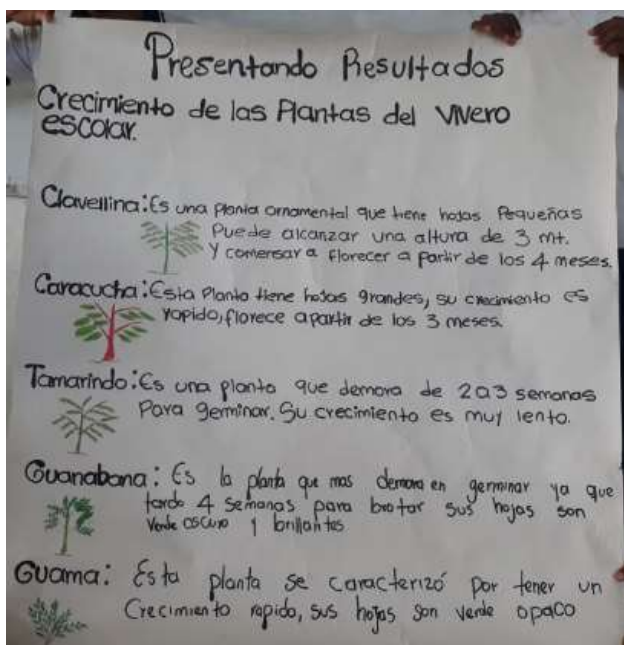 Presentando Resultados
Crecimiento de las Plantas del Vivero
escolar.
Clavellina: Es una planta ornamental que tiene hojas Pequeñas
Puede alcanzar una altura de 3 mt.
y comensar a florecer a partir de los 4 meses.
Caracucha: Esta Planta tiene hojas grandes, su crecimiento es
rapido, florece apartir de los 3 meses.
Tamarindo: Es una planta que demora de 2 a 3 semanas
Para germinar. Su crecimiento es muy lento.
Guanabana: Es la planta que mas demora en germinar ya que
tarda 4 semanas para brotar sus hojas son
Verde oscuro y brillantes
Guama: Esta planta se caracterizó por tener un
Crecimiento rapido, sus hojas son verde opaco